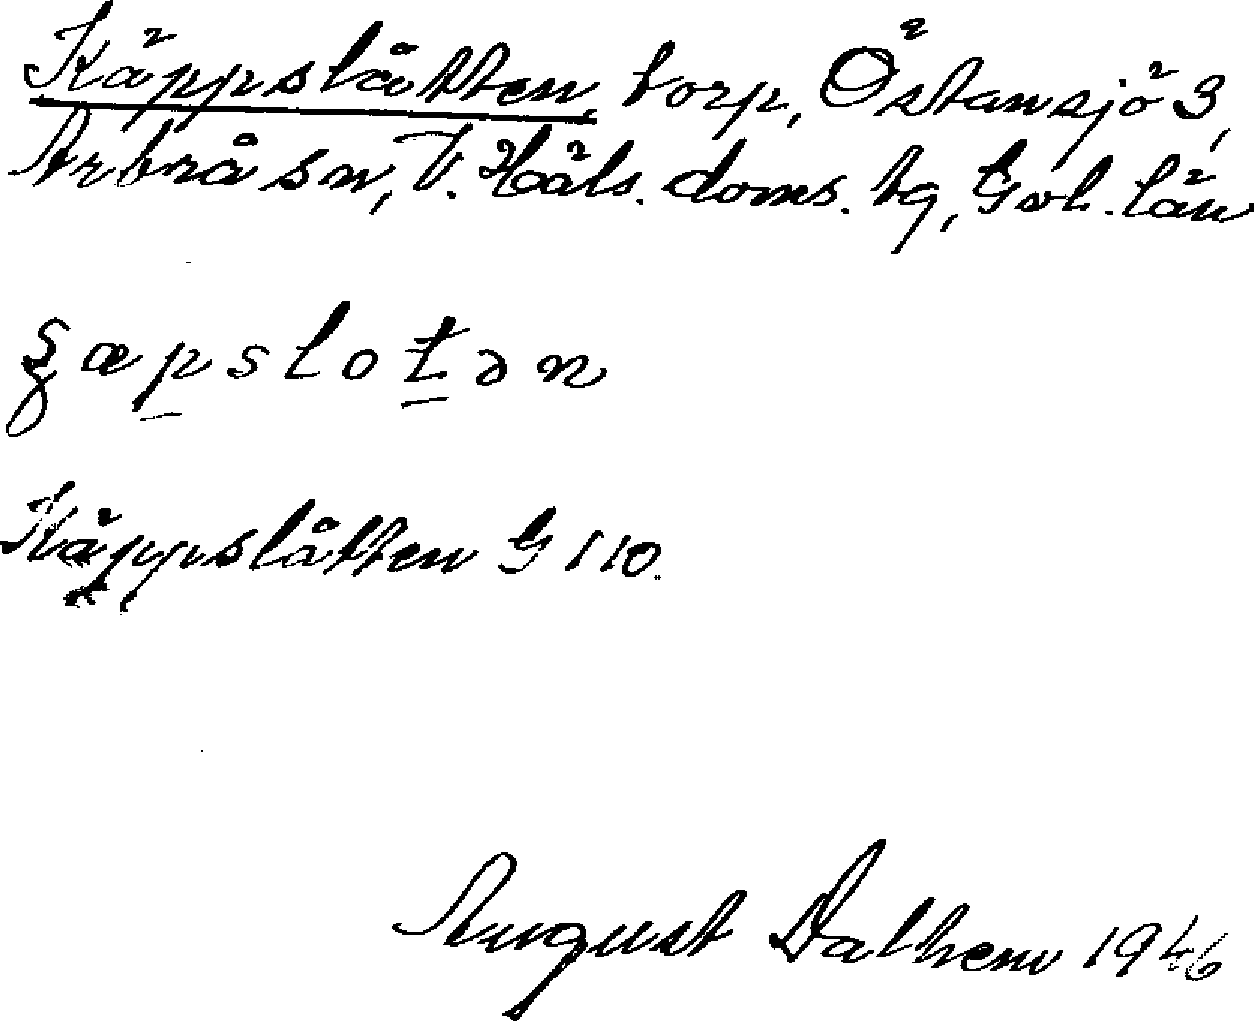 Käppslåtten, torp, Östansjö 3,
Arbrå sn, V. Häls. doms. tg, Gvl. län
Käppslåtten G 110.
August Dalhem 1946